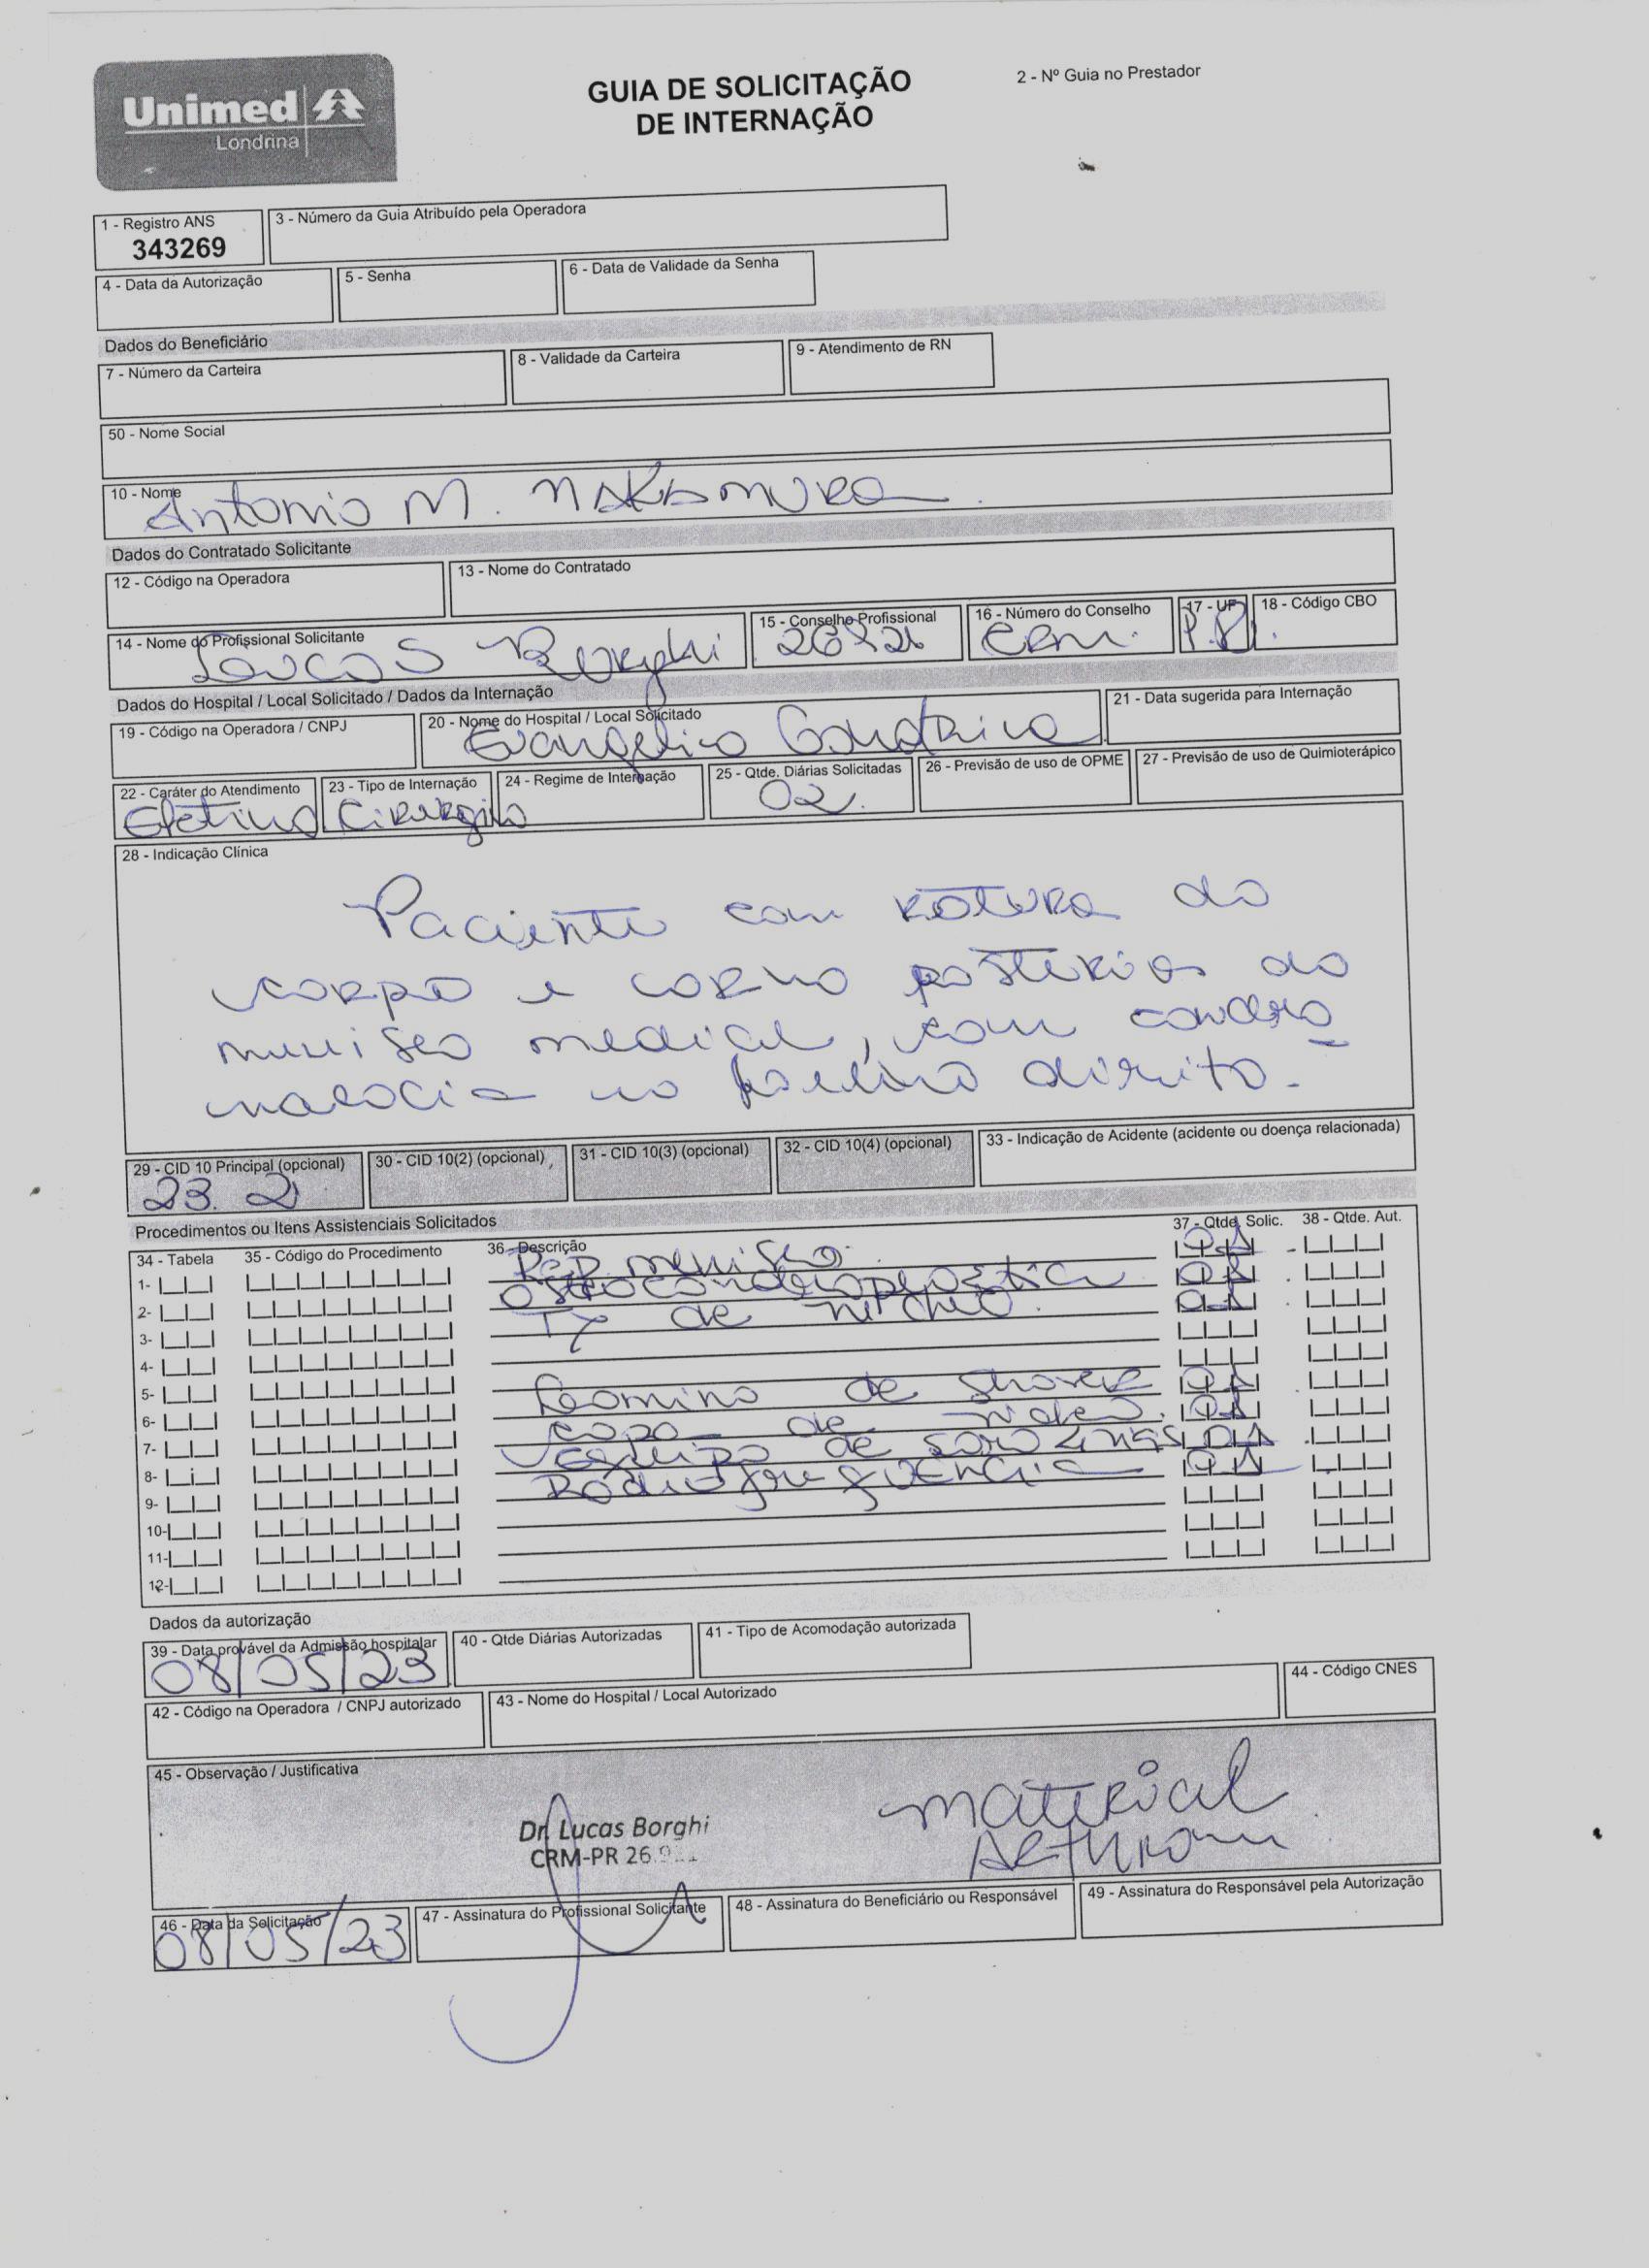 Unimed
Londrina
GUIA DE SOLICITAÇÃO
DE INTERNAÇÃO
2 - Nº Guia no Prestador
1 - Registro ANS
343269
3 - Número da Guia Atribuído pela Operadora
4 - Data da Autorização
5 - Senha
6 - Data de Validade da Senha
Dados do Beneficiário
7 - Número da Carteira
8 - Validade da Carteira
9 - Atendimento de RN
50 - Nome Social
10 - Nome
Antonio M. Nakamura
Dados do Contratado Solicitante
12 - Código na Operadora
13 - Nome do Contratado
14 - Nome do Profissional Solicitante
Lucas Borghi
15 - Conselho Profissional
16 - Número do Conselho
CRM.
17 - UF
P.R.
18 - Código CBO
Dados do Hospital / Local Solicitado / Dados da Internação
19 - Código na Operadora / CNPJ
20 - Nome do Hospital / Local Solicitado
Evangelico Londrina
21 - Data sugerida para Internação
22 - Caráter do Atendimento
Eletivo
23 - Tipo de Internação
Cirurgico
24 - Regime de Internação
25 - Qtde. Diárias Solicitadas
02.
26 - Previsão de uso de OPME
27 - Previsão de uso de Quimioterápico
28 - Indicação Clínica
Paciente com rotura do
corpo e corno posterior do
menisco medial, com condro
malacia no joelho direito.
29 - CID 10 Principal (opcional)
23.2
30 - CID 10(2) (opcional)
31 - CID 10(3) (opcional)
32 - CID 10(4) (opcional)
33 - Indicação de Acidente (acidente ou doença relacionada)
Procedimentos ou Itens Assistenciais Solicitados
34 - Tabela
35 - Código do Procedimento
36 - Descrição
37 - Qtde. Solic.
38 - Qtde. Aut.
1- menisco. 01
2- Osteocondroplastia 01
3- de 01
4-
5-
6- Lamina de Shaver 01
7- capa de video. 01
8- Equipo de soro 4 vias 01
9- Radiofrequencia 01
10-
11-
12-
Dados da autorização
39 - Data provável da Admissão hospitalar
08/05/23
40 - Qtde Diárias Autorizadas
41 - Tipo de Acomodação autorizada
42 - Código na Operadora / CNPJ autorizado
43 - Nome do Hospital / Local Autorizado
44 - Código CNES
45 - Observação / Justificativa
Dr. Lucas Borghi
CRM-PR 26.
material
46 - Data da Solicitação
08/05/23
47 - Assinatura do Profissional Solicitante
48 - Assinatura do Beneficiário ou Responsável
49 - Assinatura do Responsável pela Autorização